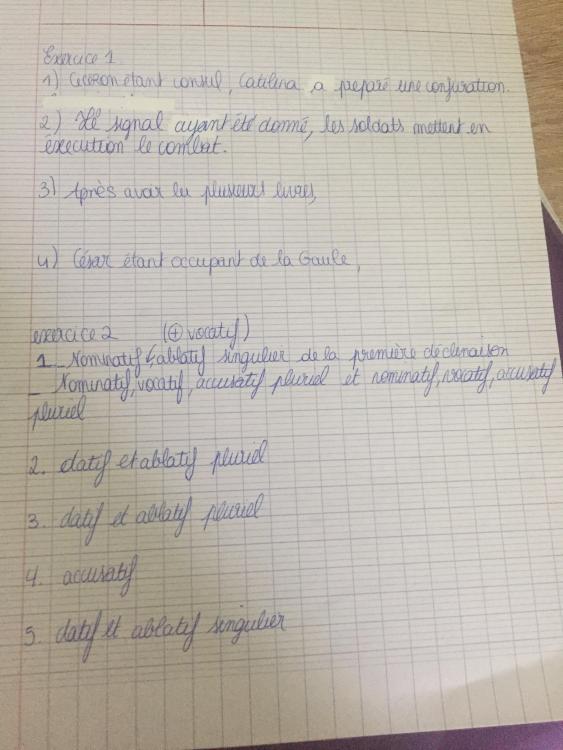 Exercice 1
1) Ciceron étant consul, Catilina a preparé une conjuration.
2) Le signal ayant été donné, les soldats mettent en
éxecution le combat.
3) Après avoir lu plusieurs livres,
4) César étant occupant de la Gaule,
exercice 2 (+ vocatif)
1 _ Nominatif, ablatif singulier de la première déclinaison
_ Nominatif, vocatif, accusatif pluriel et nominatif, vocatif, accusatif
pluriel
2. datif et ablatif pluriel
3. datif et ablatif pluriel
4. accusatif
5. datif et ablatif singulier